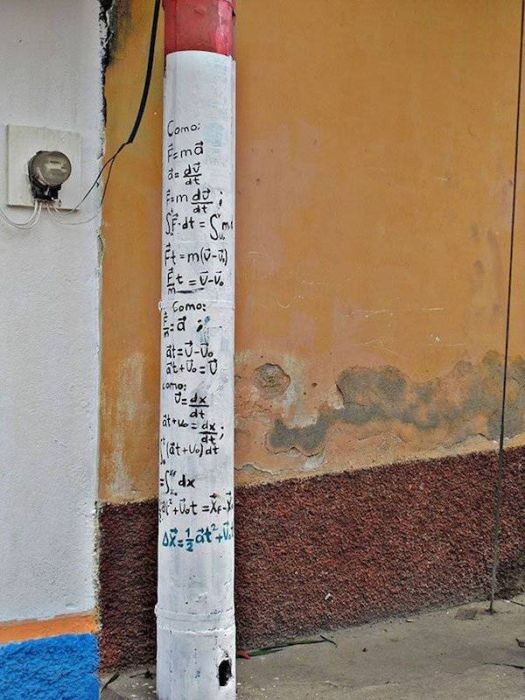 Como:
F⃗=ma⃗
a⃗=dv⃗/dt
F⃗=m dv⃗/dt ;
∫F⃗·dt=∫m
F⃗t=m(v⃗-v⃗₀)
F⃗/m t=v⃗-v⃗₀
Como:
F⃗/m=a⃗ ;
a⃗t=v⃗-v⃗₀
a⃗t+v⃗₀=v⃗
Como:
v⃗=dx⃗/dt
a⃗t+v₀=dx⃗/dt ;
∫(a⃗t+v₀)dt
=∫dx
t²+v⃗₀t=x⃗f-x⃗
Δx⃗=½a⃗t²+v⃗₀t